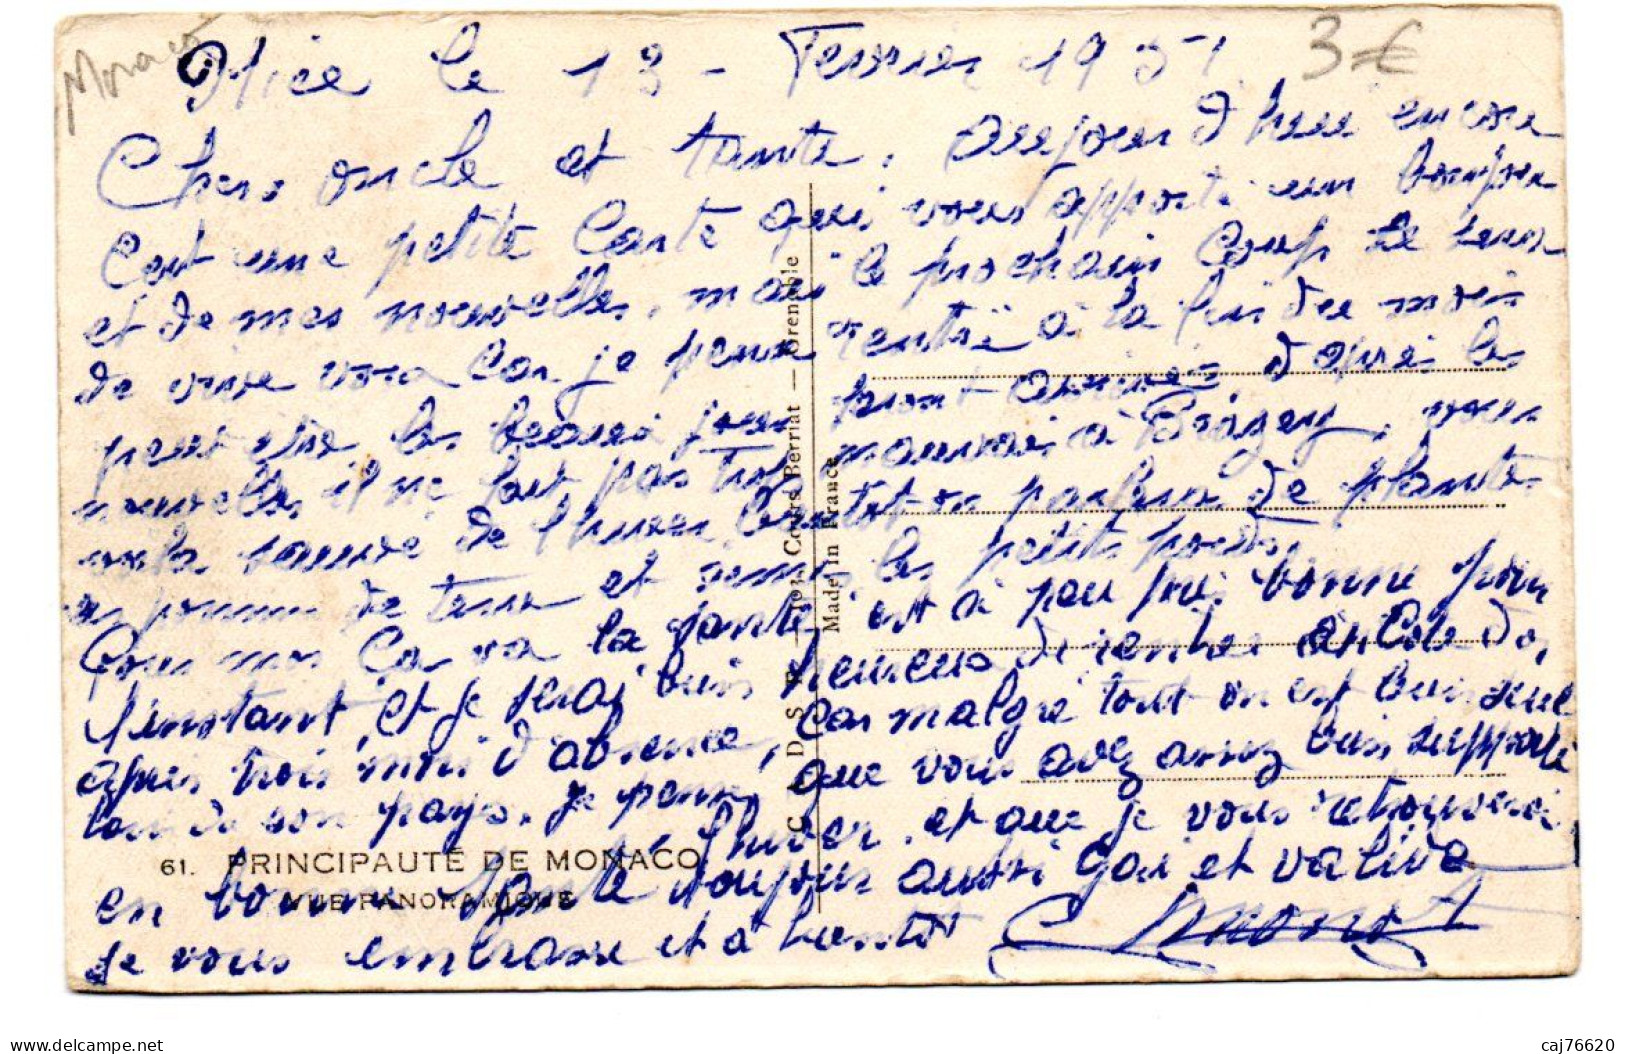 Monaco
Nice le 13 - Fevrier 1951
3€
Chers oncle et tante, aujourd'hui encore
c'est une petite carte qui vous apporte un bonjour
et de mes nouvelles, mais le prochain coup se sera
de vive voix car je pense rentré à la fin du mois
peut être les beaux jours seront arrivés, d'après les
nouvelles il ne fait pas trop mauvais à Brazey, vous
voila sauvé de l'hiver, bientôt on parlera de planter
les pommes de terre et semer les petits pois.
Pour moi ça va la santé est à peu près bonne pour
l'instant, et je serai bien heureux de rentrer en Cote d'or,
après trois mois d'absence, car malgré tout on est bien seul
loin de son pays. Je pense que vous avez assez bien supporté
l'hiver, et que je vous retrouverai
en bonne santé toujours aussi gai et valide
Je vous embrasse et à bientôt
61. PRINCIPAUTÉ DE MONACO
VUE PANORAMIQUE
C. A. D. S. E. — 103, Cours Berriat — Grenoble
Made in France
www.delcampe.net
caj76620